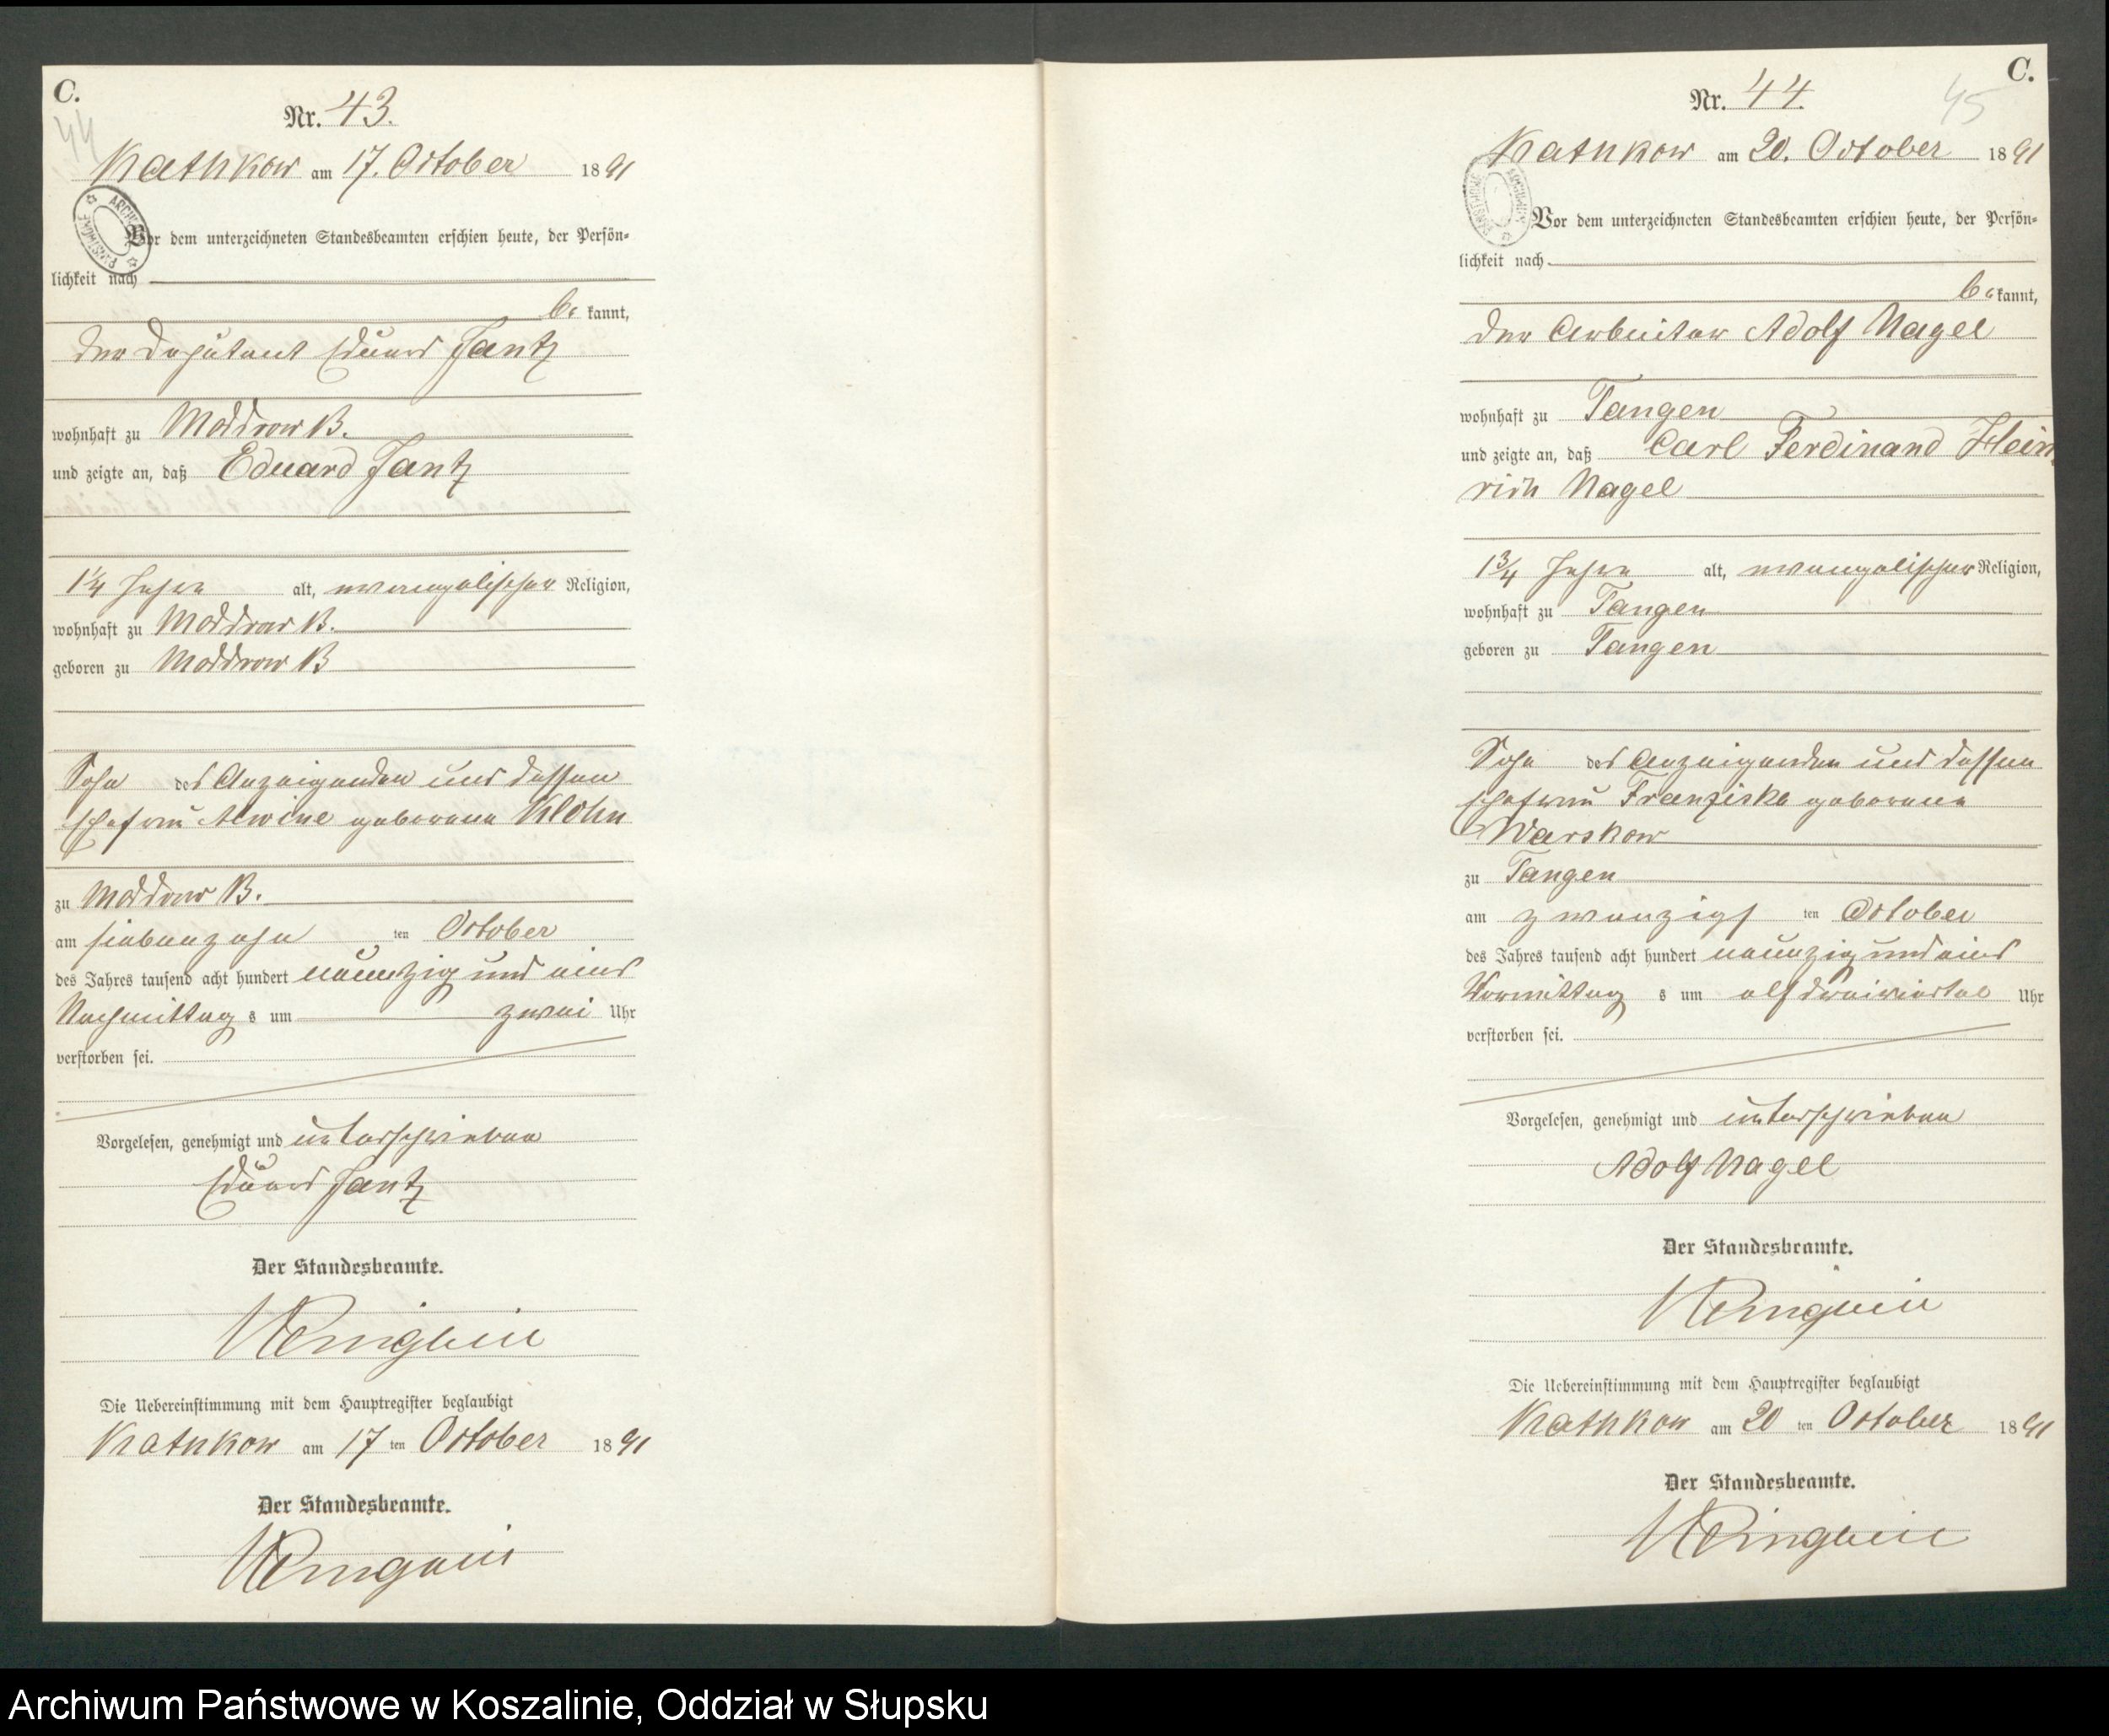 C.
44
Nr. 43.
Kathkow am 17. October 1891
Vor dem unterzeichneten Standesbeamten erschien heute, der Persön-
lichkeit nach
be kannt,
der Deputant Eduard Jantz
wohnhaft zu Moddrow B.
und zeigte an, daß Eduard Jantz
1¼ Jahre alt, evangelischer Religion,
wohnhaft zu Moddrow B.
geboren zu Moddrow B
Sohn des Anzeigenden und dessen
Ehefrau Alwine geborene Klohn
zu Moddrow B.
am siebenzehn ten October
des Jahres tausend acht hundert neunzig und eins
Nachmittag s um zwei Uhr
verstorben sei.
Vorgelesen, genehmigt und unterschrieben
Eduard Jantz
Der Standesbeamte.
Die Uebereinstimmung mit dem Hauptregister beglaubigt
Kathkow am 17 ten October 1891
Der Standesbeamte.
C.
45
Nr. 44.
Kathkow am 20. October 1891
Vor dem unterzeichneten Standesbeamten erschien heute, der Persön-
lichkeit nach
be kannt,
der Arbeiter Adolf Nagel
wohnhaft zu Tangen
und zeigte an, daß Carl Ferdinand Hein
rich Nagel
1¾ Jahre alt, evangelischer Religion,
wohnhaft zu Tangen
geboren zu Tangen
Sohn des Anzeigenden und dessen
Ehefrau Franziska geborene
Warskow
zu Tangen
am zwanzigs ten October
des Jahres tausend acht hundert neunzig und eins
Vormittag s um elf dreiviertel Uhr
verstorben sei.
Vorgelesen, genehmigt und unterschrieben
Adolf Nagel
Der Standesbeamte.
Die Uebereinstimmung mit dem Hauptregister beglaubigt
Kathkow am 20 ten October 1891
Der Standesbeamte.
Archiwum Państwowe w Koszalinie, Oddział w Słupsku